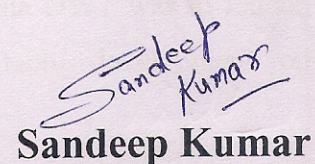 Sandeep
Kumar
Sandeep Kumar